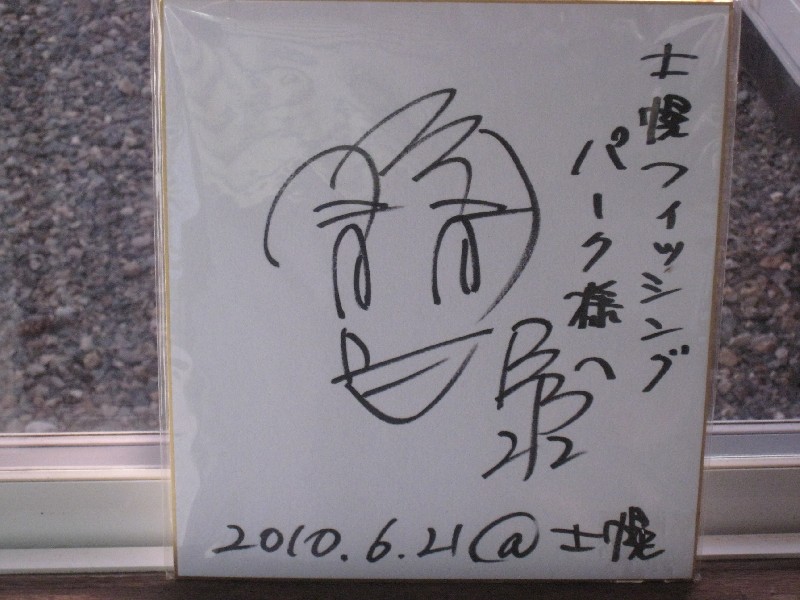 士幌フィッシング
パーク様へ
BB
22
2010.6.21@士幌